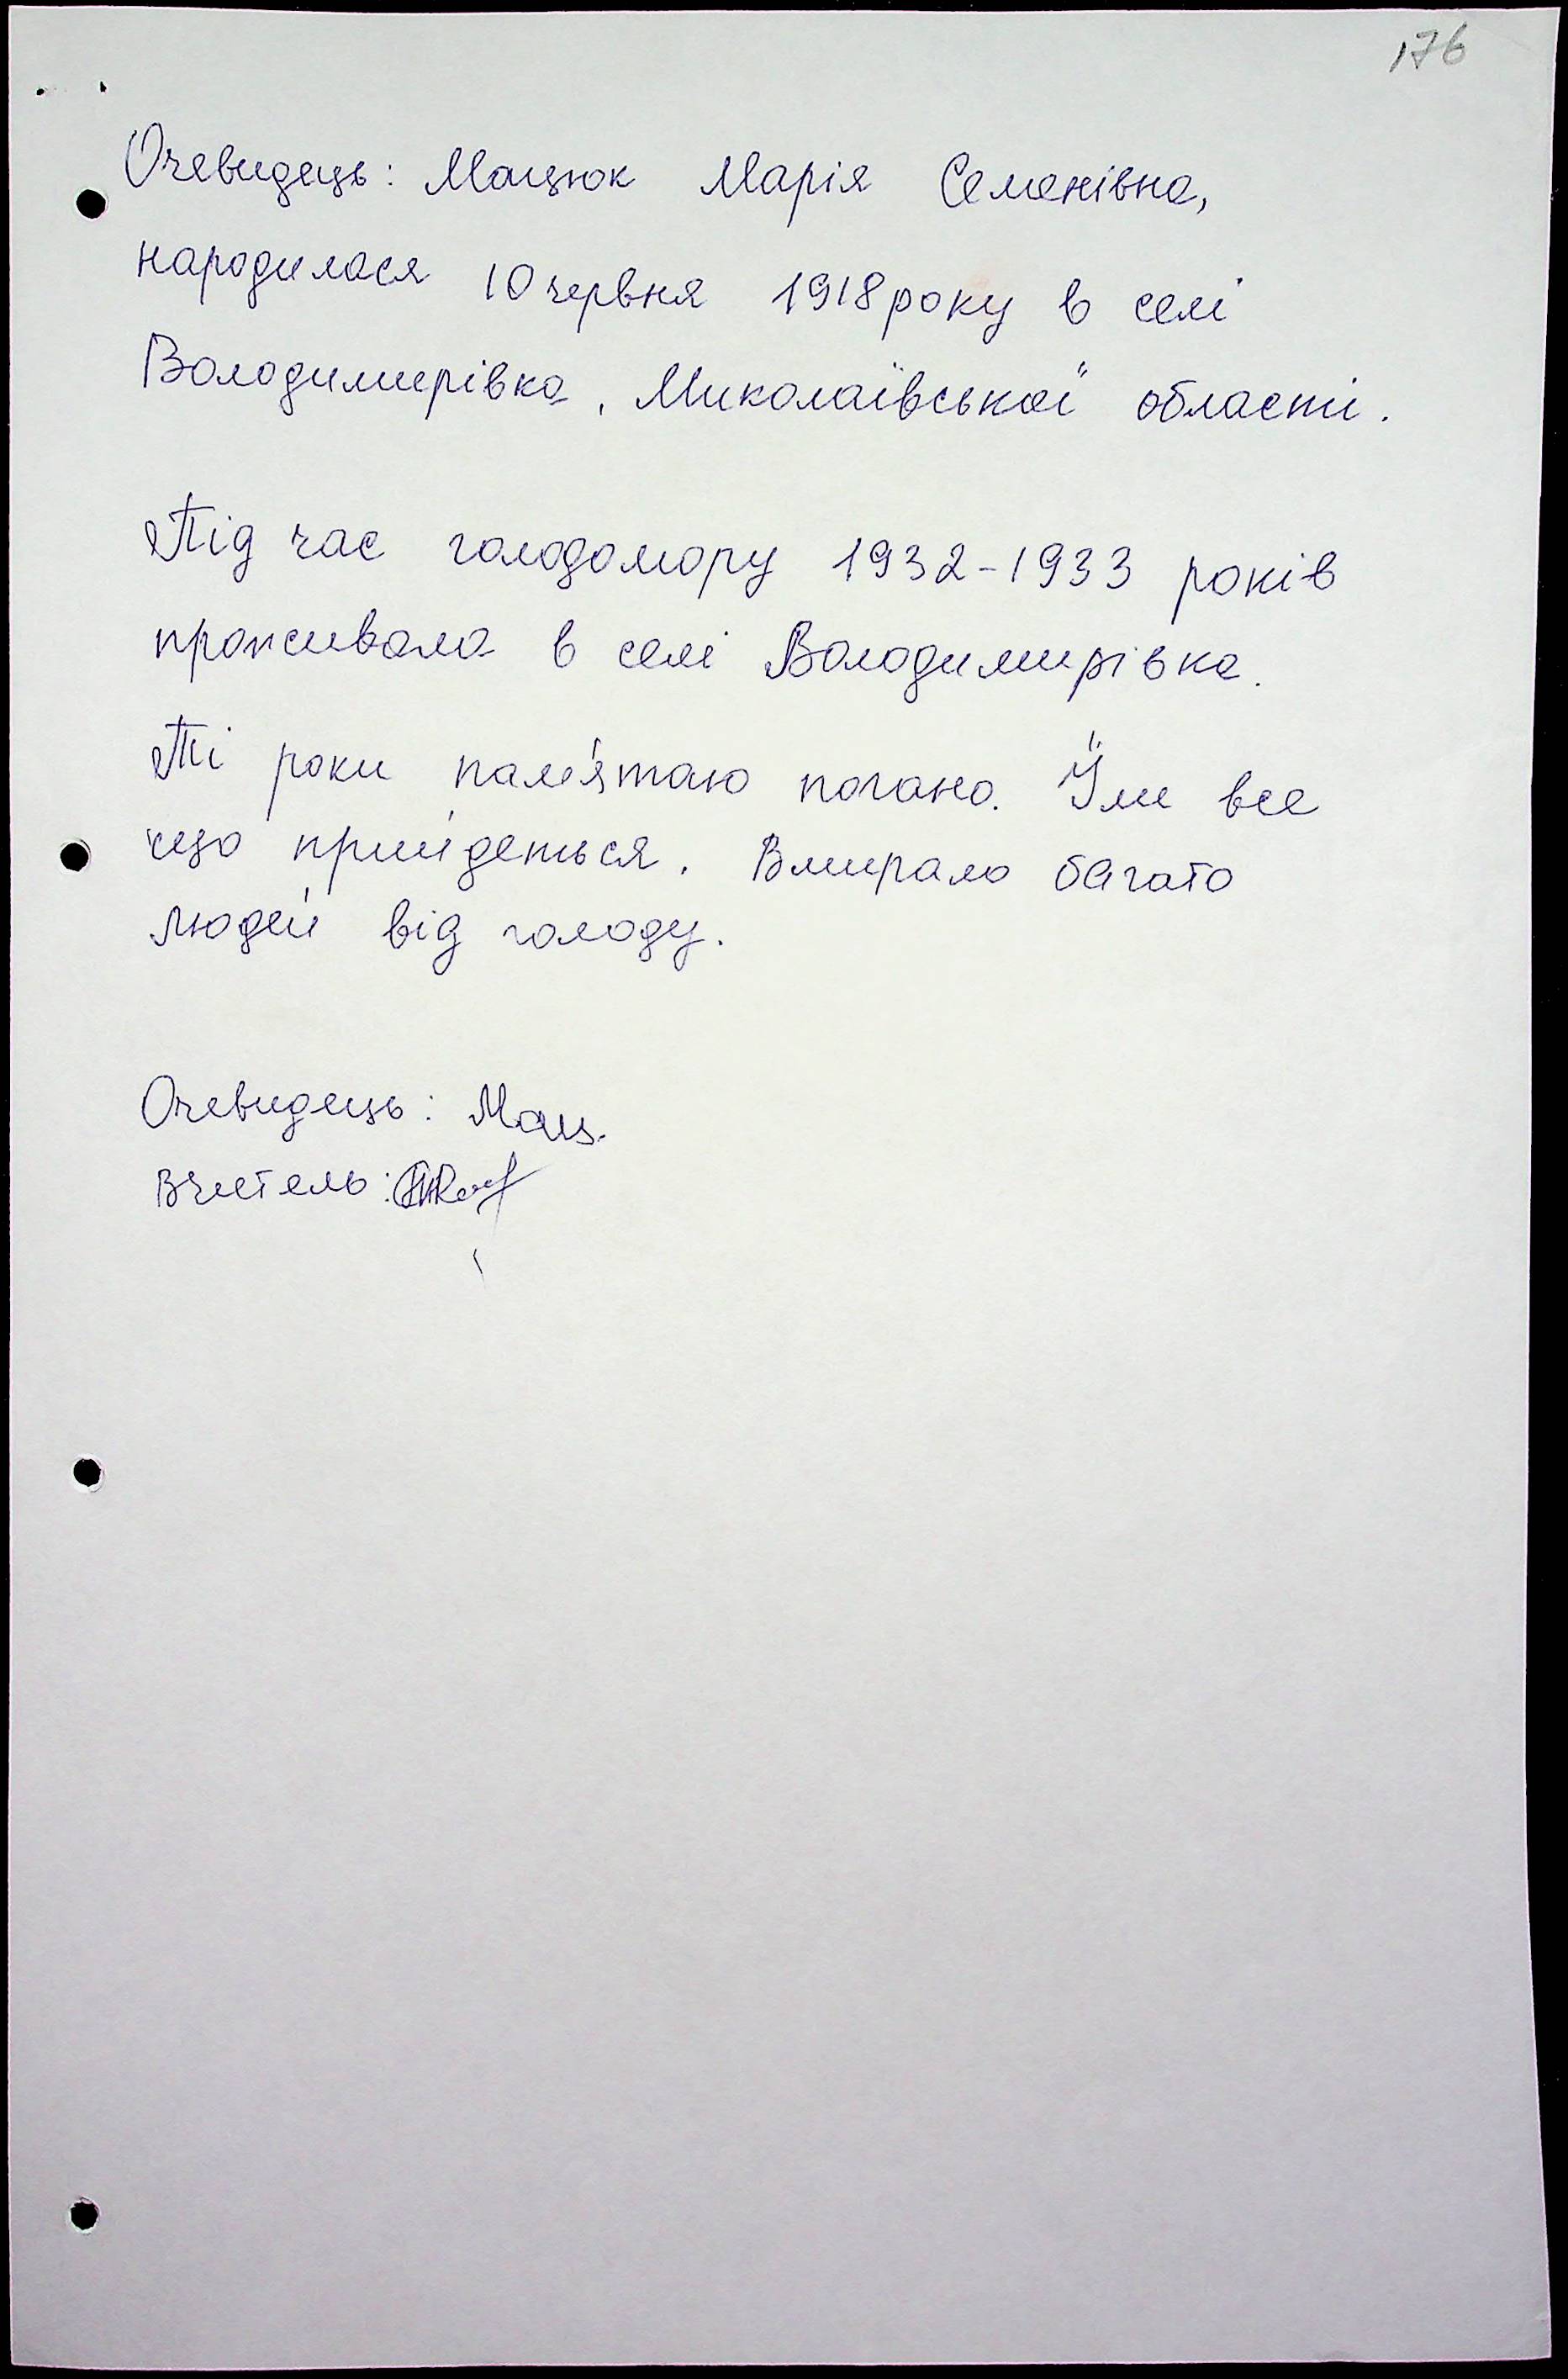 176
Очевидець: Мацюк Марія Семенівна,
народилася 10 червня 1918 року в селі
Володимирівка, Миколаївської області.
Під час голодомору 1932-1933 років
проживала в селі Володимирівка.
Ті роки пам'ятаю погано. Їли все
що прийдеться. Вмирало багато
людей від голоду.
Очевидець: Мац.
Вчитель: